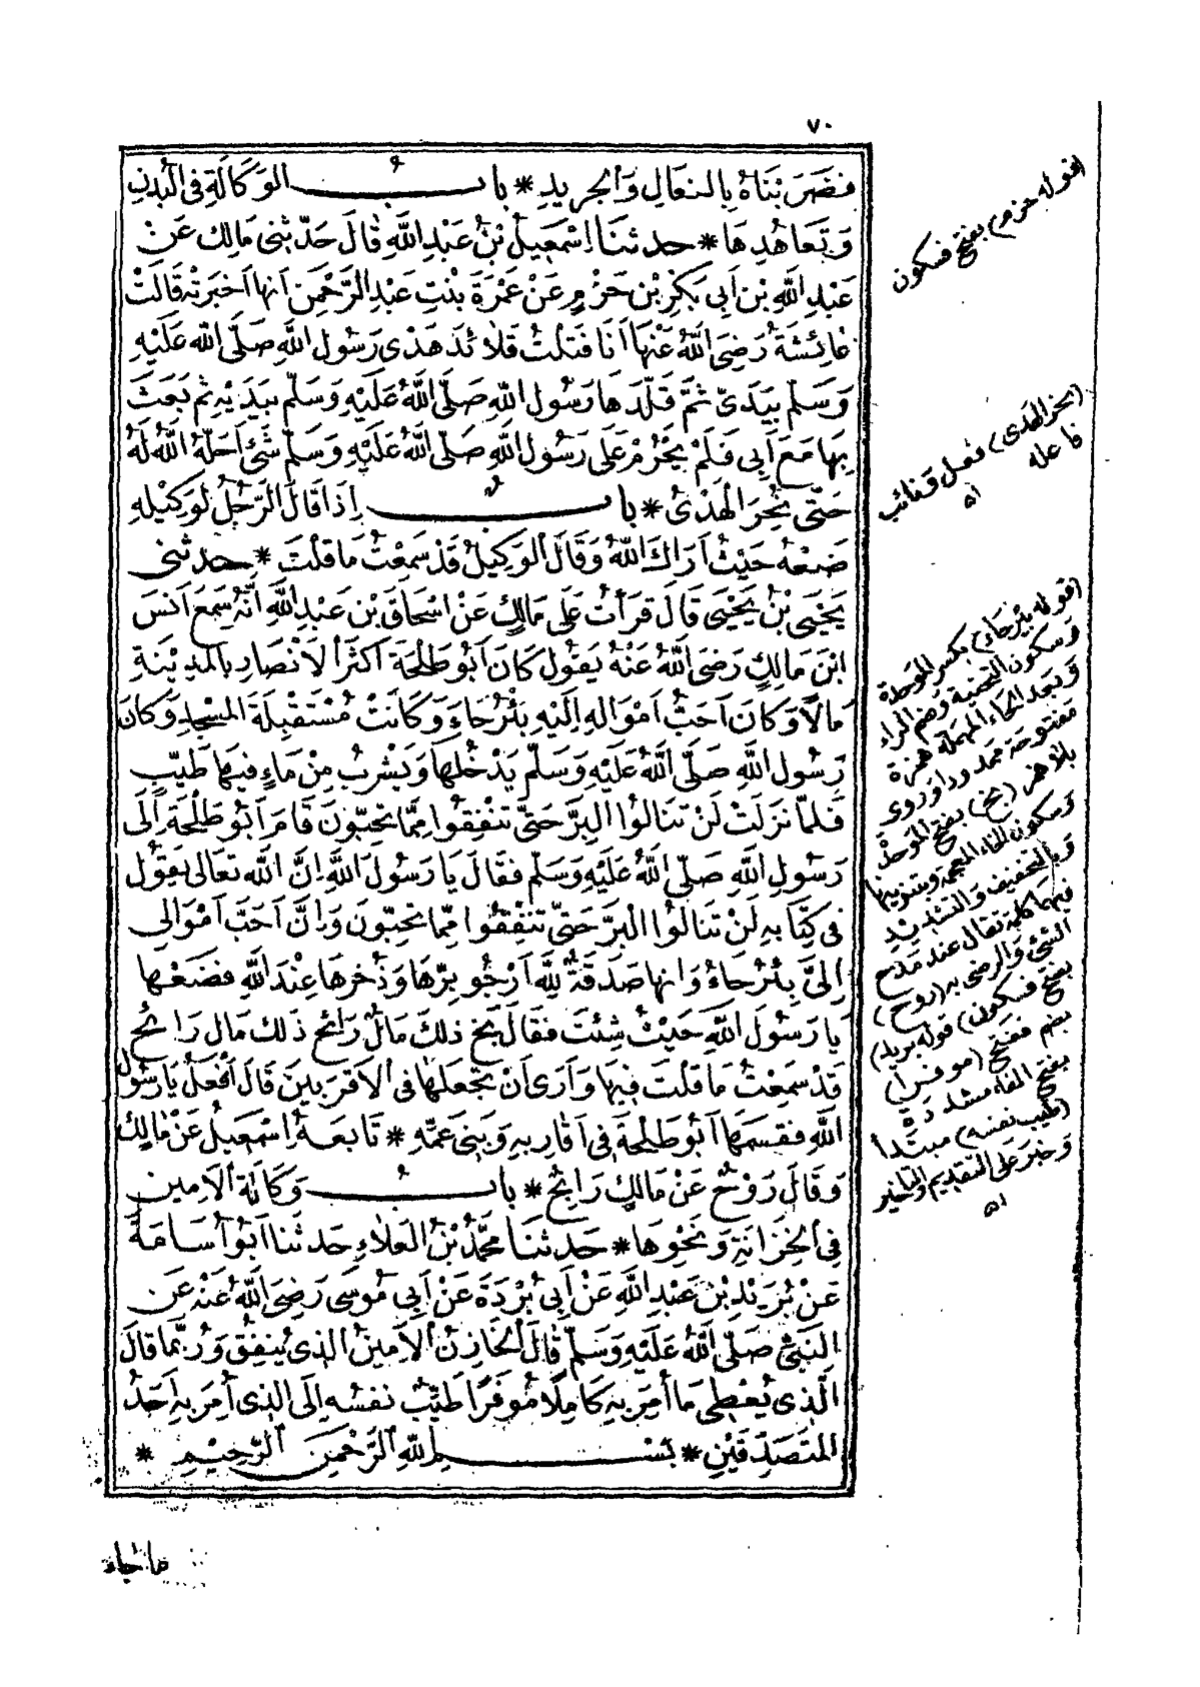 ٧٠
فضَرَبْنَاهُ بِالنِعَالِ وَالْجَرِيدِ * بابُ الوَكَالَةِ فِى الْبُدْنِ
وَتَعَاهُدِهَا * حدثنَا اِسْمَعِيلُ بْنُ عَبْدِ اللّٰهِ قَالَ حَدَّثَنِى مَالِك عَنْ
عَبْدِ اللّٰهِ بْنِ اَبِى بَكْرِ بْنِ حَزْمٍ عَنْ عَمْرَةَ بِنْتِ عَبْدِ الرَّحْمٰنِ اَنها اَخبَرَتْهُ قَالَتْ
عَائِشَةُ رَضِىَ اللّٰهُ عَنْهَا اَنَا فَتَلْتُ قَلَائدَ هَدْىِ رَسُولِ اللّٰهِ صَلَّى اللّٰه عَلَيْهِ
وَسَلَّم بِيَدَىَّ ثمَّ قَلَّدَهَا رَسُولُ اللّٰهِ صَلَّى اللّٰهُ عَلَيْهِ وَسَلَّم بيَدَيْهِ ثم بَعَثَ
بِهَا مَعَ اَبِى فَلَمْ يَحْرُمْ عَلَى رَسُولِ اللّٰهِ صَلَّى اللّٰهُ عَلَيْهِ وَسَلَّم شَئٌ اَحَلَّهُ اللّٰهُ لَهُ
حَتَّى نُحِرَ الْهَدْىُ * بابُ اِذَا قَالَ الرَّجُلُ لِوَكِيْلِهِ
ضَعْهُ حَيْثُ اَرَاكَ اللّٰهُ وَقَالَ الْوَكِيلُ قَدْ سَمِعْتُ مَا قُلْتَ * حدثنى
يَحْيَى بْنُ يَحْيَى قَالَ قَرَأْتُ عَلَى مَالِكٍ عَنْ اسْحَاقَ بْنِ عَبْدِ اللّٰهِ اَنَّهُ سَمِعَ اَنَسَ
ابْنَ مَالِكٍ رَضِىَ اللّٰهُ عَنْهُ يَقُولُ كَانَ اَبُو طَلْحَةَ اَكثَرَ الْاَنْصَارِ بِالْمَدِيْنَةِ
مَالًا وَكَانَ اَحَبُّ اَمْوَالِهِ اِلَيْهِ بَئْرُحَاءَ وَكَانَتْ مُسْتَقْبِلَةَ الْمَسْجِدِ وَكَانَ
رَسُولُ اللّٰهِ صَلَّى اللّٰهُ عَلَيْهِ وَسَلَّم يَدْخُلُهَا وَيَشْرَبُ مِنْ مَاءٍ فِيهَا طَيِّبٍ
فَلَمَّا نَزَلَتْ لَنْ تَنَالُوا الْبِرَّ حَتَّى تُنْفِقُوا مِمَّا تُحِبّونَ قَامَ اَبُو طَلْحَةَ اِلَى
رَسُولِ اللّٰهِ صَلَّى اللّٰهُ عَلَيْهِ وَسَلَّم فقَالَ يَا رَسُولَ اللّٰهِ اِنَّ اللّٰه تعَالَى يَقُولُ
فِى كِتَابِهِ لَنْ تَنَالُوا الْبِرَّ حَتَّى تُنْفِقُوا مِمَّا تُحِبّونَ وَاِنَّ اَحَبَّ اَمْوَالِى
اِلَىَّ بِئْرُحَاءُ وَانها صَدَقَةٌ لِلّٰهِ اَرْجُو بِرَّهَا وَذُخْرَهَا عِنْدَ اللّٰهِ فضَعْها
يَا رَسُولَ اللّٰهِ حَيْثُ شِئْتَ فقَالَ بَخٍ ذلِكَ مَالٌ رَائِحٌ ذَلِكَ مَال رَائِحٌ
قَدْ سَمِعْتُ مَا قُلْتَ فِيهَا وَاَرَى اَنْ تَجْعَلَهَا فِى الْاَقْرَبِينَ قَالَ اَفْعَلُ يَا رَسُولَ
اللّٰهِ فقسَمَهَا اَبُو طَلْحَةَ فِى اَقَارِبِهِ وَبَنِى عَمِّهِ * تَابَعَهُ اِسْمَعِيلُ عَنْ مَالِكٍ
وَقَالَ رَوْحٌ عَنْ مَالِكٍ رَابِحٌ * بابُ وَكَالَةِ الْاَمِينِ
فِى الْخِزَانَةِ وَنَحْوِهَا * حَدثنَا مُحَمَّدُ بْنُ الْعَلَاءِ حَدثنَا اَبُو اُسَامَةَ
عَنْ بُرَيْدِ بْنِ عَبْدِ اللّٰهِ عَنْ اَبِى بُرْدَةَ عَنْ اَبِى مُوسَى رَضِىَ اللّٰهُ عَنْهُ عَنِ
النَّبِىِّ صَلَّى اللّٰهُ عَلَيْهِ وَسَلَّم قَالَ الْخَازِنُ الْاَمِينُ الَّذِى يُنْفِقُ وَرُبَّمَا قَالَ
الَّذِى يُعْطِى مَا اُمِرَ بِهِ كَامِلًا مُوَفَّرًا طَيِّبٌ نفسُهُ اِلَى الَّذِى اُمِرَ بِهِ اَحَدُ
الْمُتَصَدِّقَيْنِ * بِسْمِ اللّٰهِ الرَّحْمٰنِ الرَّحِيْمِ *
(قوله حزم) بفتح فسكون
(نحر الهدى) فعل فنائب
فاعله
اه
(قوله بئرحاء) بكسر الموحدة
وسكون التحتية وضم الراء
وبعد الحاء المهملة همزة
مفتوحة ممدودا وروى
بلا همز (بخ) بفتح الموحدة
وسكون الخاء المعجمة وبتنوينها
وبالتخفيف والتشديد
فيهما كلمة تقال عند مدح
الشئ والرضى به (روح)
بفتح فسكون (قوله بريد)
بضم ففتح (موفرا)
بفتح الفاء مشددة
(طيب نفسه) مبتدأ
وخبر على التقديم والتأخير
اه
ما جاء